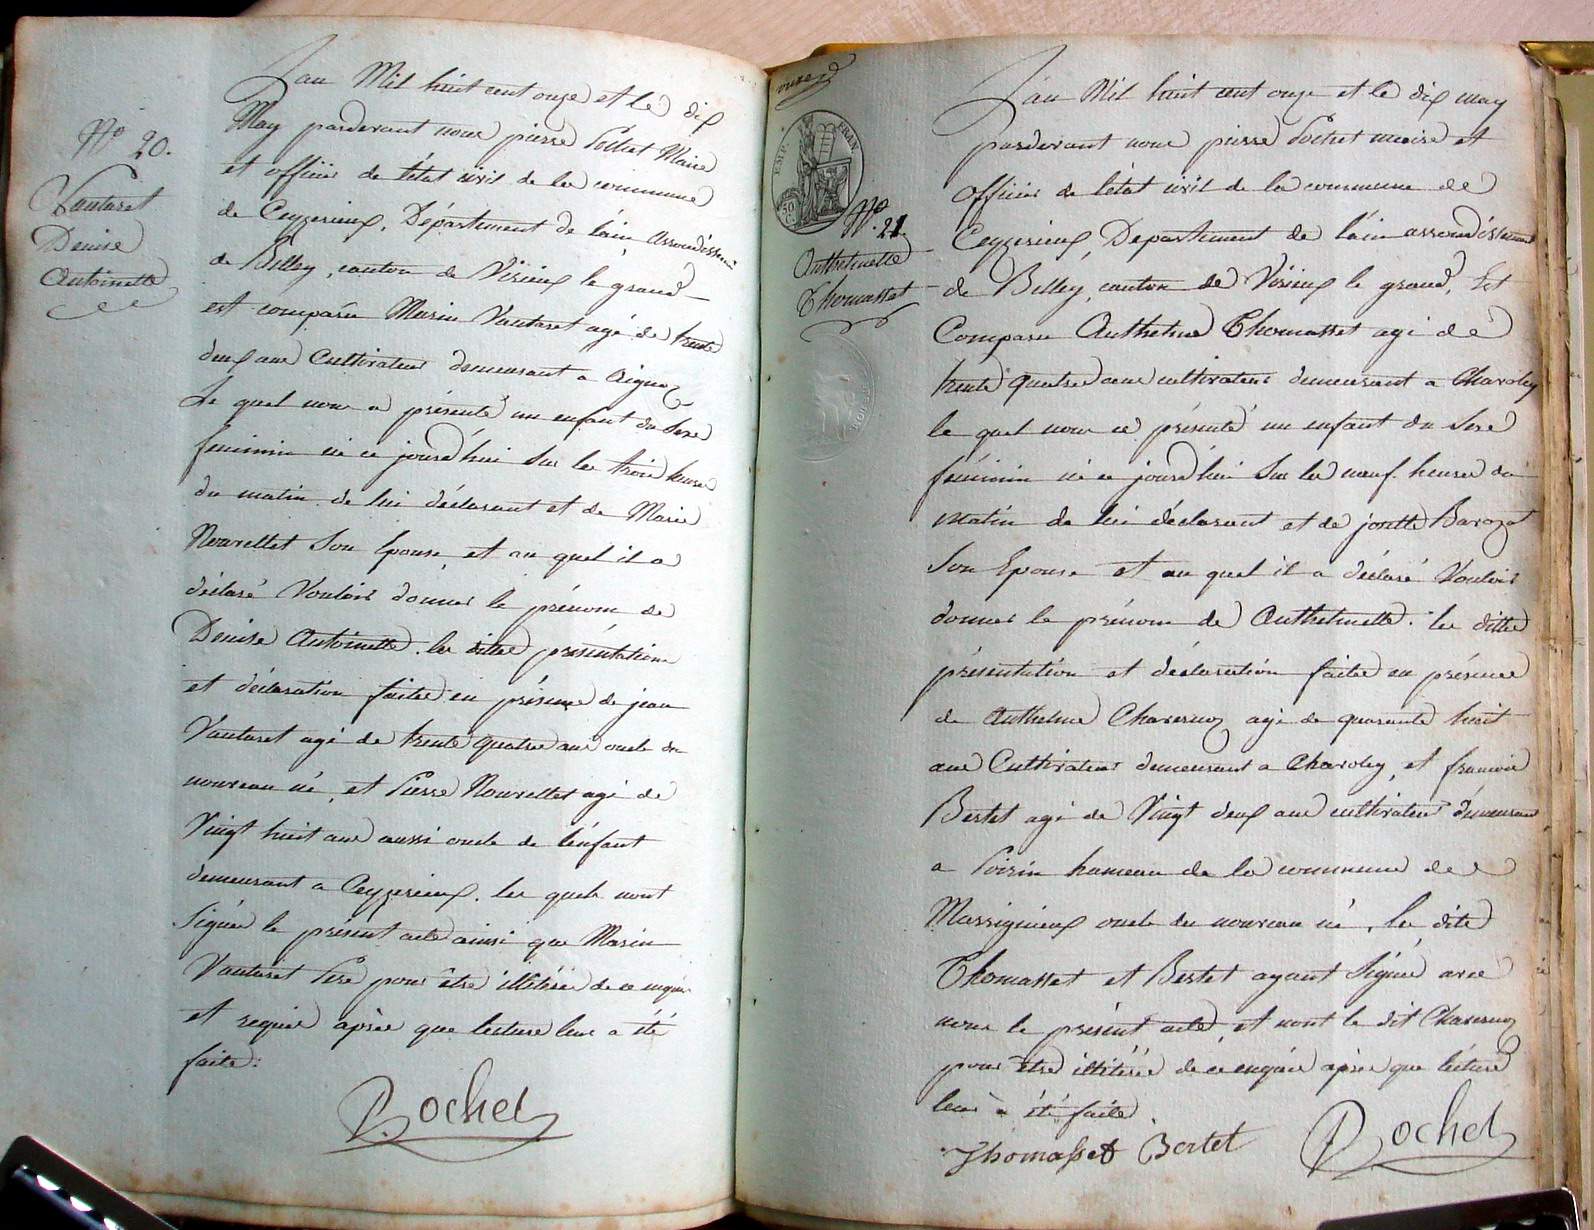 N° 20.
Vautaret
Denise
Antoinette
Lan Mil huit cent onze et le dix
May pardevant nous pierre Pochet Maire
et officier de l'état civil de la commune
de Ceyzerieux, Département de l'ain arrondissement
de Belley, canton de Virieux le grand
est comparu Marin Vautaret agé de trente
deux ans Cultivateur demeurant a Aignoz
Le quel nous a présenté un enfant du Sexe
feminin né ce jourd'hui Sur les trois heures
du matin de lui déclarant et de Marie
Nouvellet Son Epouse, et au quel il a
déclaré Vouloir donner le prénom de
Denise Antoinette. les dittes présentation
et déclaration faites en présence de jean
Vautaret agé de trente quatre ans oncle du
nouveau né, et Pierre Nouvellet agé de
Vingt huit ans aussi oncle de l'enfant
demeurant a Ceyzerieux. les quels n'ont
Signé le présent acte ainsi que Marin
Vautaret Pere pour être illétirés de ce enquis
et requis après que lecture leur a été
faite:
Pochet
onze
EMP. FRAN.
50
N°. 21.
Anthelmette
Thomasset
Lan Mil huit cent onze et le dix may
pardevant nous pierre Pochet maire et
officier de l'état civil de la commune de
Ceyzerieux Departement de l'ain arrondissement
de Belley, canton de Virieux le grand, Est
Comparu Anthelme Thomasset agé de
trente quatre ans cultivateur demeurant a Charoley
le quel nous a présenté un enfant du Sexe
féminin né ce jourd'hui Sur les neuf heures du
matin de lui déclarant et de josette Barozat
Son Epouse et au quel il a déclaré Vouloir
donner le prénom de Anthelmette. les dittes
présentation et déclaration faites en présence
de Anthelme Charcruoz agé de quarante huit
ans Cultivateur demeurant a Charoley, et francois
Bertet agé de Vingt deux ans cultivateur demeurant
a Poisin hameau de la commune de
Massignieux oncle du nouveau né, les dits
Thomasset et Bertet ayant Signé avec
nous le présent acte, et n'ont le dit
pour être illétirés de ce enquis après que lecture
leur a été faite.
Thomasset Bertet Pochet